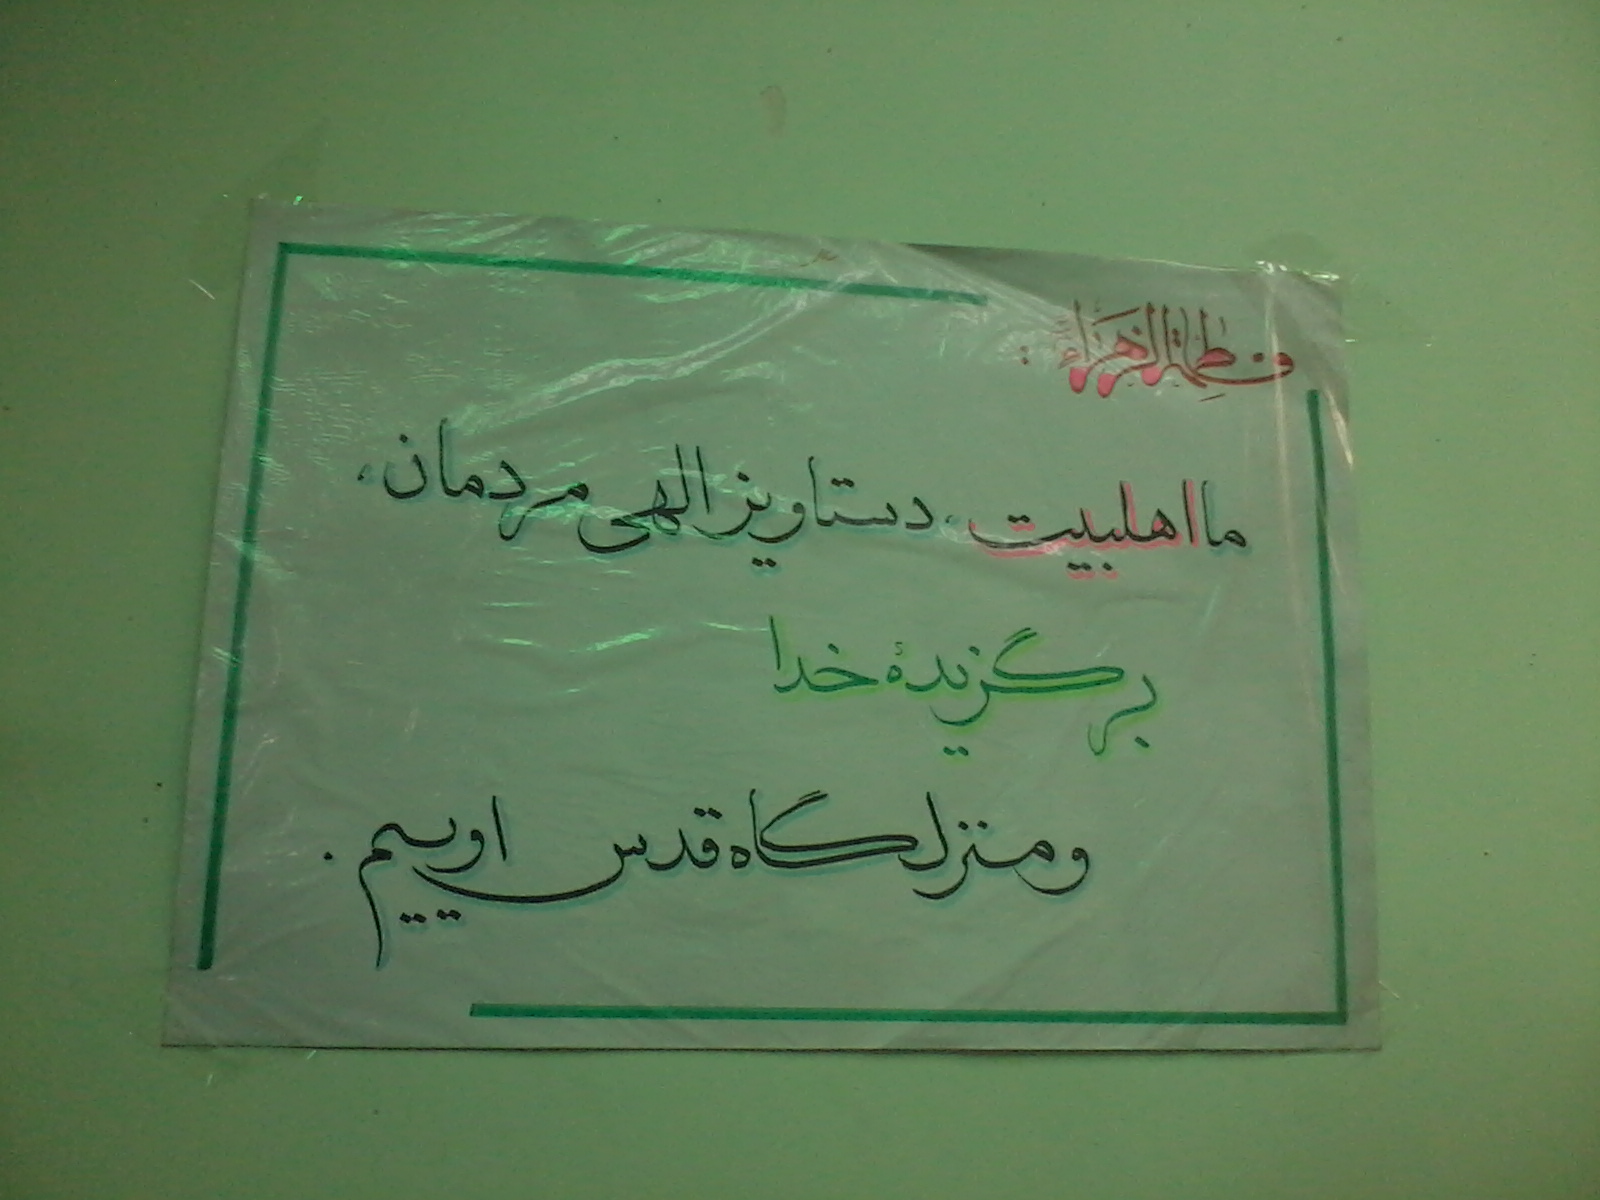 فاطمة الزهراء :
ما اهلبیت، دستاویز الهی مردمان،
برگزیدهٔ خدا
و منزلگاه قدس اوییم .